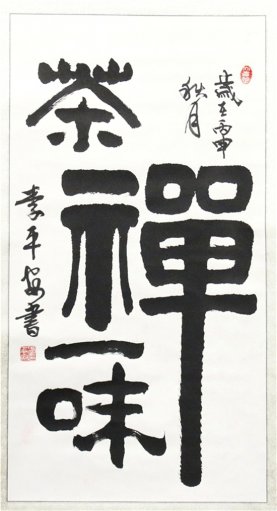 歲在丙申
秋月
茶禪一味
平安書